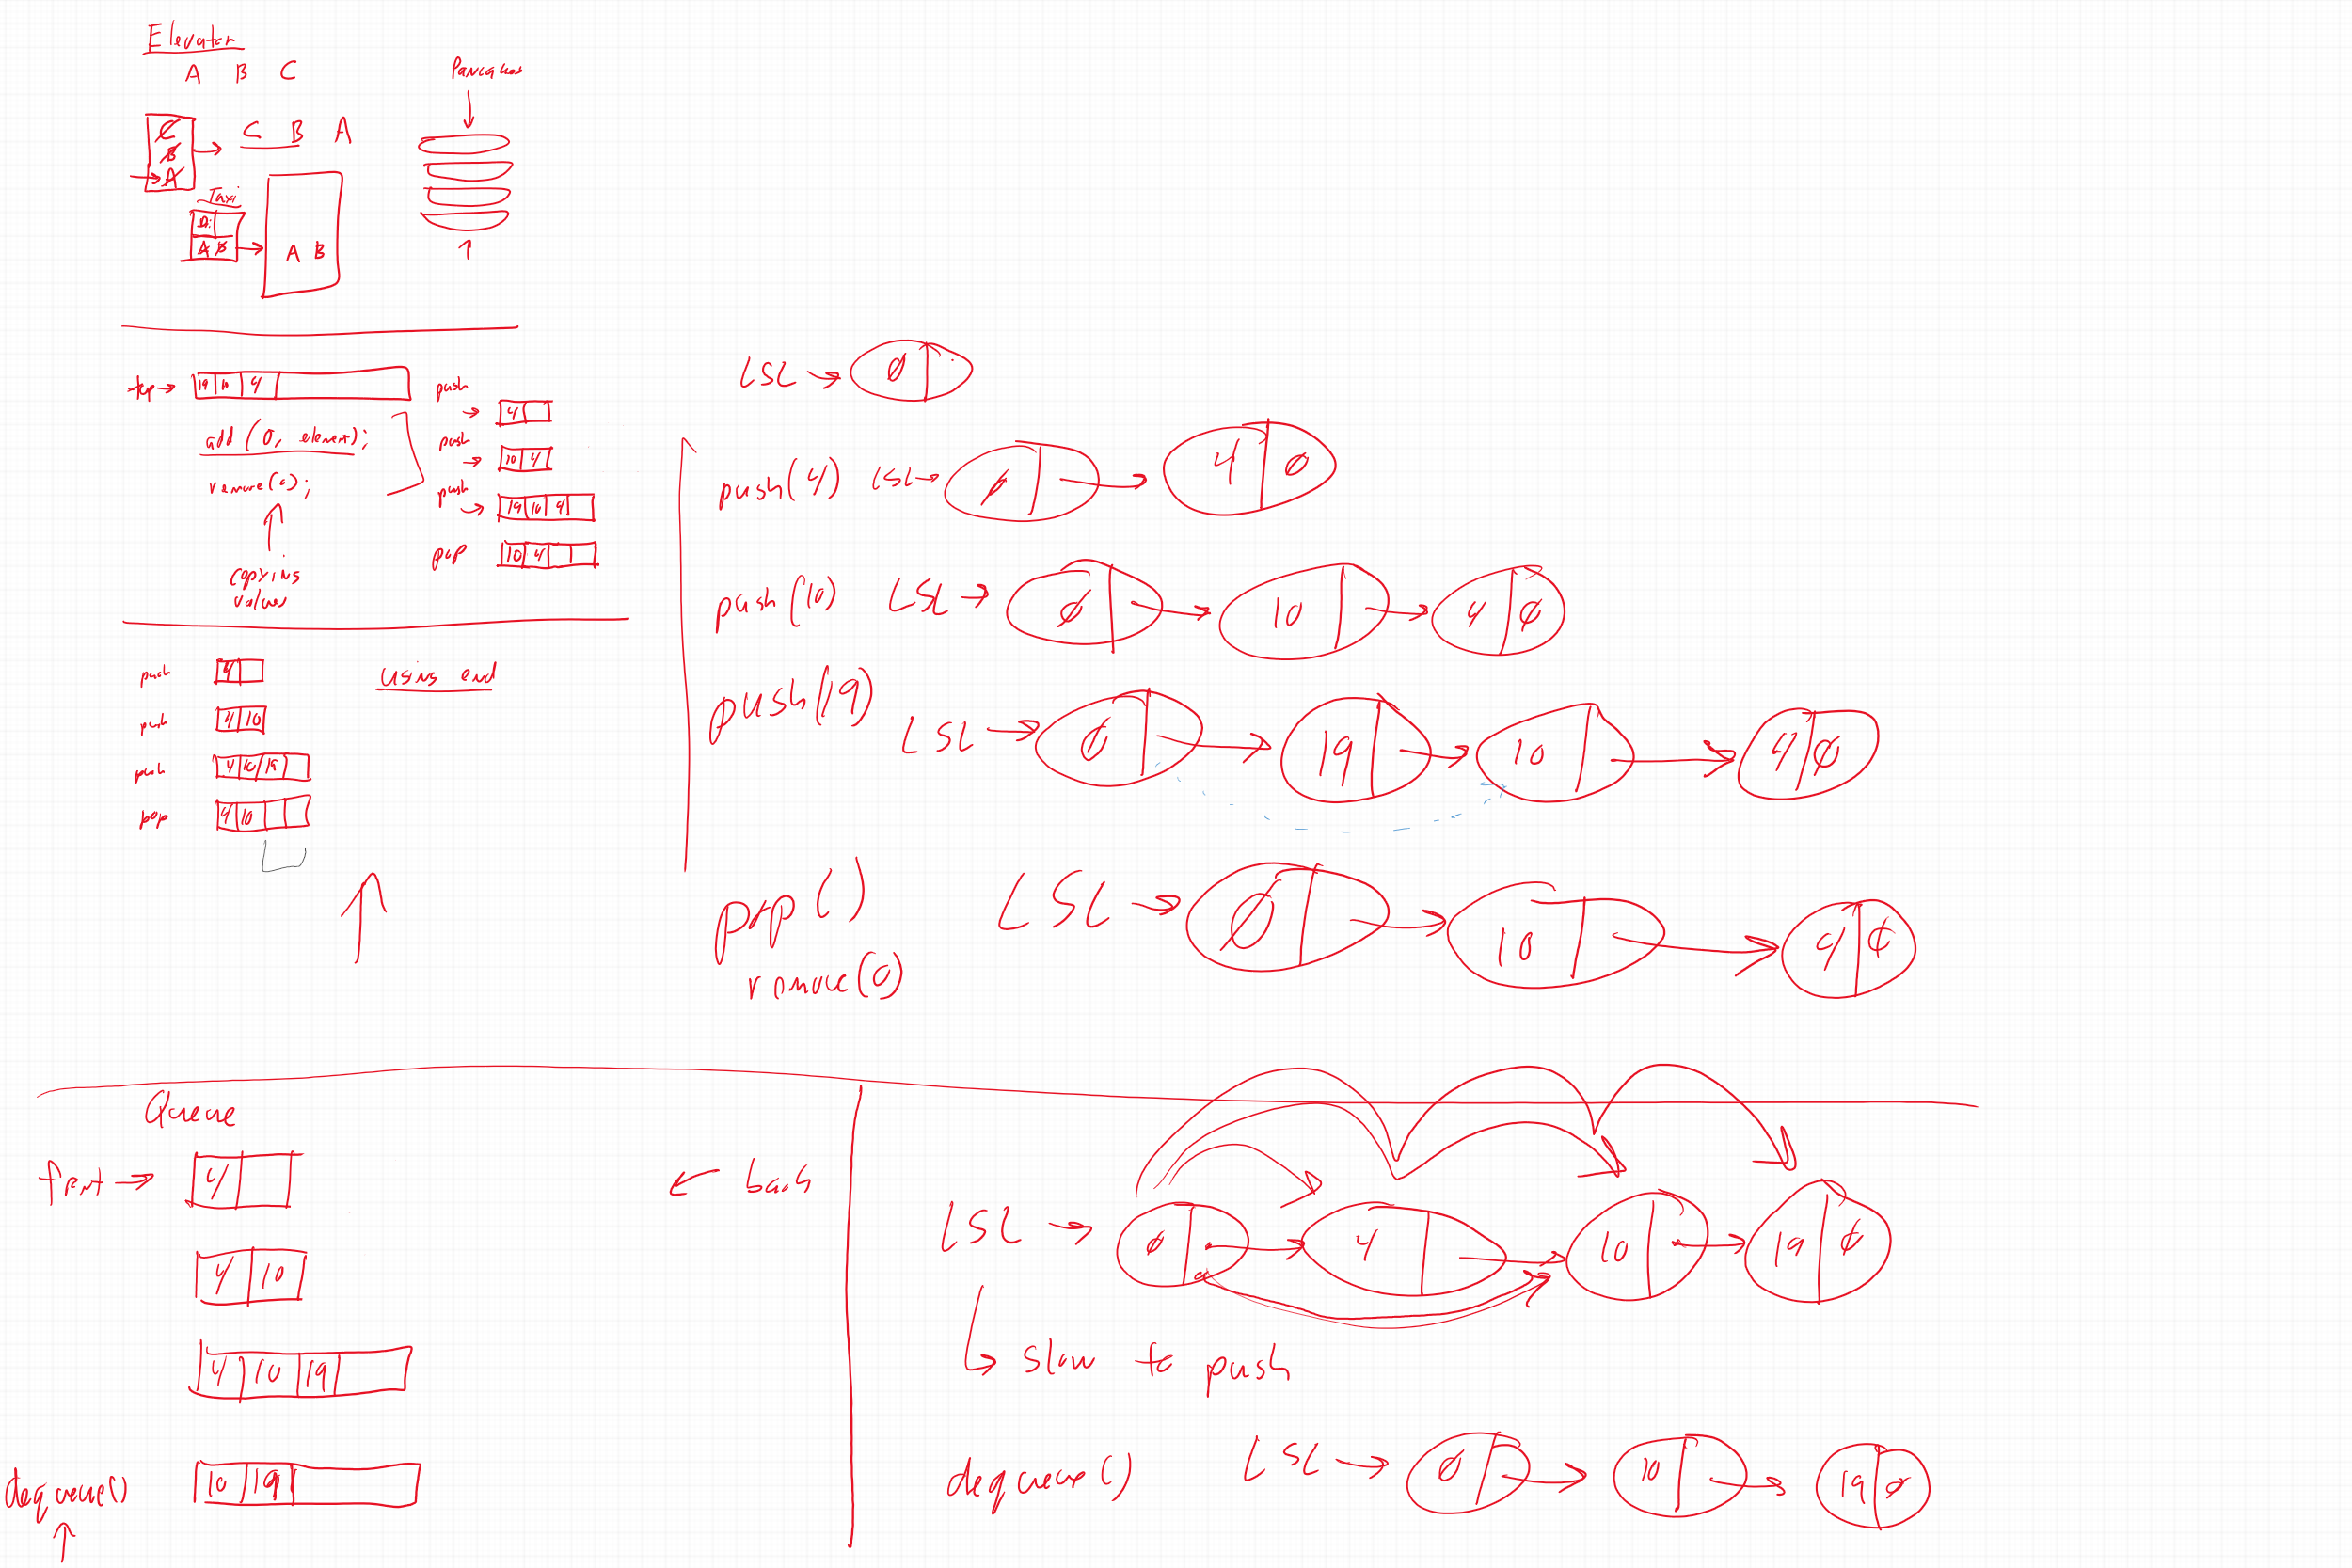 Elevator
A B C
C
B
A
C B A
Taxi
D:
A B
A B
Pancakes
top 19 10 4
add (0, element);
remove(0);
copying
values
push
4
push
10 4
push
19 10 4
pop
10 4
push 4
using end
push 4 10
push 4 10 19
pop 4 10
LSL ∅
push(4) LSL ∅ 4 ∅
push(10) LSL ∅ 10 4 ∅
push(19)
LSL ∅ 19 10 4 ∅
pop() LSL ∅ 10 4 ∅
remove(0)
Queue
front 4 back
4 10
4 10 19
dequeue() 10 19
LSL ∅ 4 10 19 ∅
slow to push
dequeue() LSL ∅ 10 19 ∅